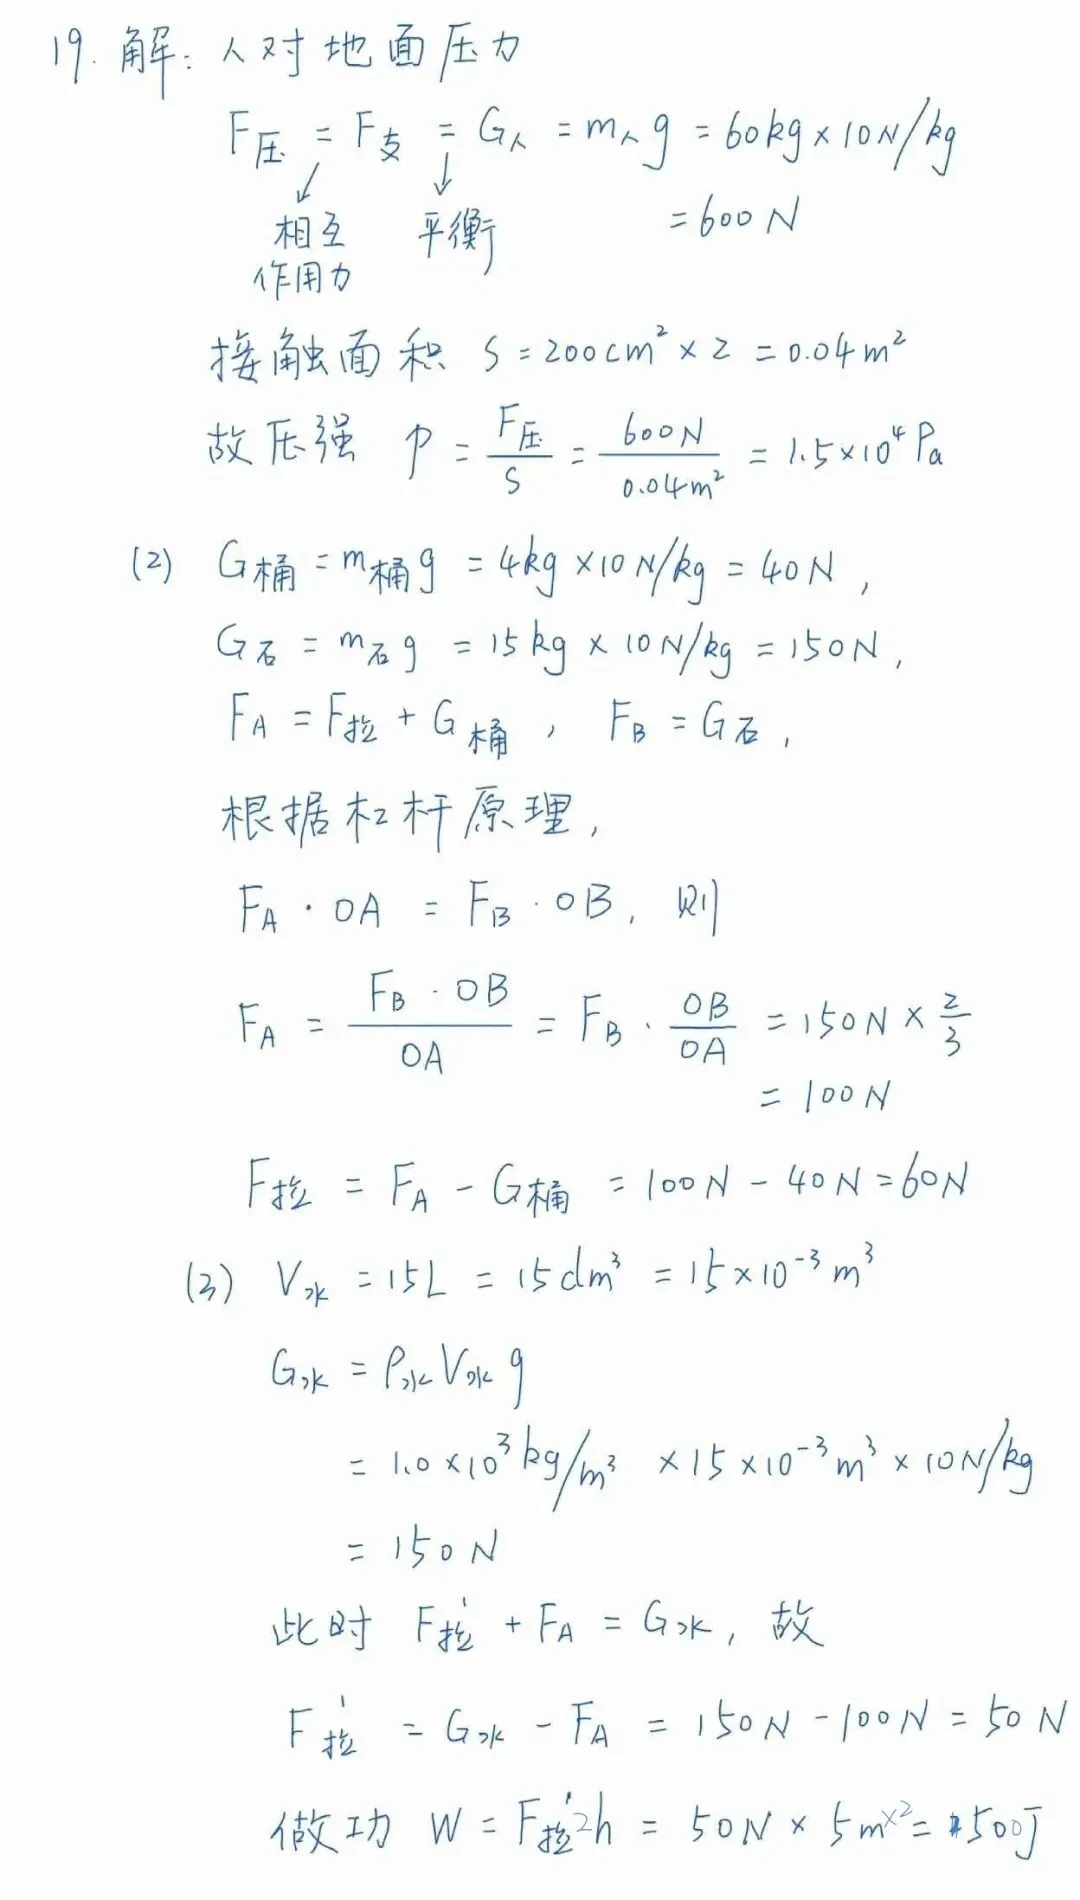 19. 解: 人对地面压力
F压 = F支 = G人 = m人g = 60kg×10N/kg
相互 平衡 = 600N
作用力
接触面积 S = 200cm²×2 = 0.04m²
故压强 p = F压/S = 600N/0.04m² = 1.5×10⁴Pa
(2) G桶 = m桶g = 4kg×10N/kg = 40N,
G石 = m石g = 15kg×10N/kg = 150N,
FA = F拉 + G桶, FB = G石,
根据杠杆原理,
FA·OA = FB·OB, 则
FA = FB·OB/OA = FB·OB/OA = 150N×2/3
= 100N
F拉 = FA - G桶 = 100N - 40N = 60N
(3) V水 = 15L = 15dm³ = 15×10⁻³m³
G水 = ρ水V水g
= 1.0×10³kg/m³ ×15×10⁻³m³×10N/kg
= 150N
此时 F拉' + FA = G水, 故
F拉' = G水 - FA = 150N - 100N = 50N
做功 W = F拉'2h = 50N×5m×2 = 500J